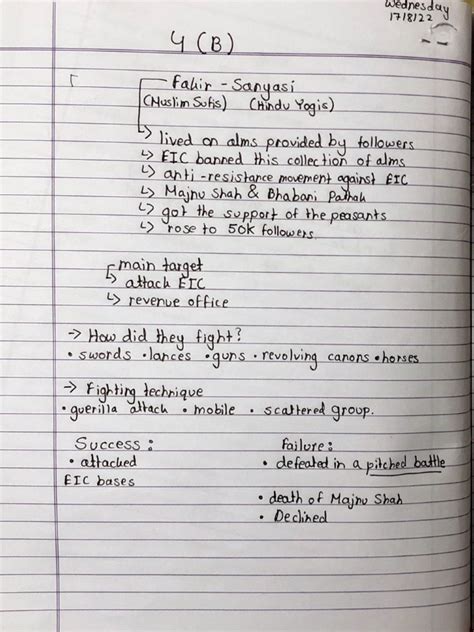 Wednesday
17/8/22
4 (B)
Fakir - Sanyasi
(Muslim Sufis) (Hindu Yogis)
↳ lived on alms provided by followers
↳ EIC banned this collection of alms
↳ anti-resistance movement against EIC
↳ Majnu Shah & Bhabani Pathak
↳ got the support of the peasants
↳ rose to 50k followers.
main target
↳ attack EIC
↳ revenue office
→ How did they fight?
• swords • lances • guns • revolving canons • horses
→ Fighting technique
• guerilla attack • mobile • scattered group.
Success : Failure :
• attacked • defeated in a pitched battle
EIC bases
• death of Majnu Shah
• Declined